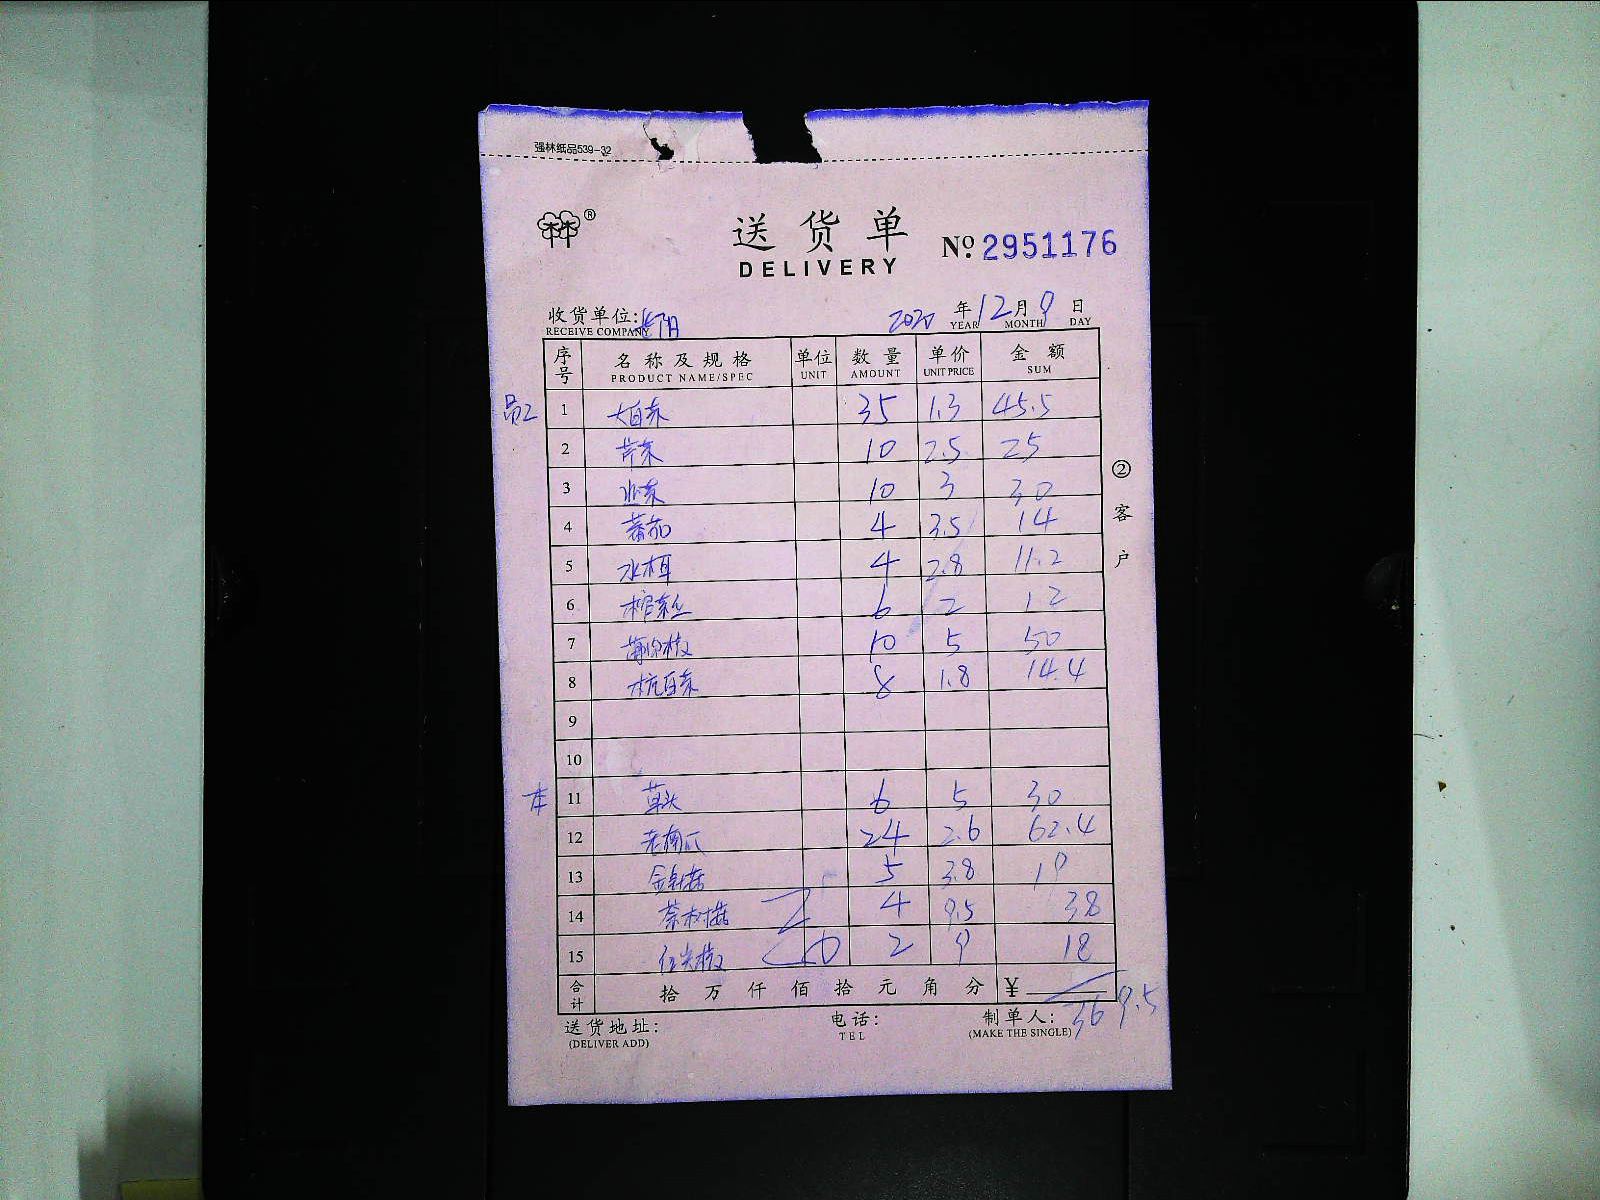 强林纸品539-32
送货单
DELIVERY
№: 2951176
收货单位: 2020 年 12 月 9 日
RECEIVE COMPANY YEAR MONTH DAY
序号 名称及规格 单位 数量 单价 金额
PRODUCT NAME/SPEC UNIT AMOUNT UNIT PRICE SUM
员工 1 大白菜 35 1.3 45.5
2 芹菜 10 2.5 25
3 10 3 30
4 蕃茄 4 3.5 14
5 水木耳 4 2.8 11.2
6 榨菜丝 6 2 12
7 10 5 50
8 杭白菜 8 1.8 14.4
9
10
11 草头 6 5 30
12 老南瓜 24 2.6 62.4
13 金针菇 5 3.8 19
14 茶树菇 4 9.5 38
15 红尖椒 2 9 18
合计 拾 万 仟 佰 拾 元 角 分 ¥ 369.5
送货地址: 电话: 制单人:
(DELIVER ADD) TEL (MAKE THE SINGLE)
②客户